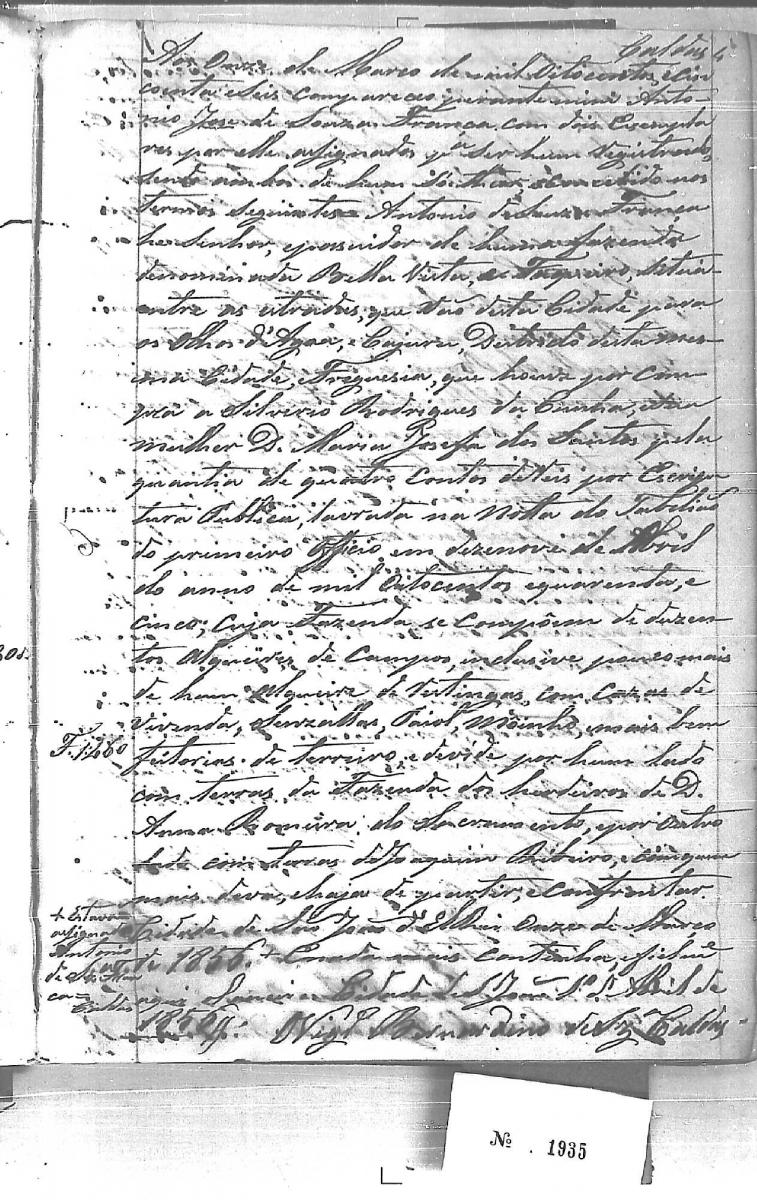 Caldas
Aos Onze de Março de mil Oitocentos e cin
coenta e Seis compareceo perante mim Anto
nio Jose de Souza Franca com dois Exempla
res por elle assignados pª ser hum registrado,
sendo ambos de hum só thior e concebido nos
termos seguintes = Antonio de Souza Franca
he Senhor, e possuidor de huma fazenda
denominada Bella Vista, e Taqu
entre as estradas, que vão desta Cidade para
os Olhos d'Agoa, e Cajuru, Destricto desta mes-
ma Cidade, e Freguesia, que houve por com-
pra a Silverio Rodrigues da Cunha, e sua
mulher D. Maria Josefa dos Santos pela
quantia de quatro contos de reis por Escrip
tura Publica, lavrada na Notta do Tabelião
do primeiro Officio em dezenove de Abril
do anno de mil Oitocentos e quarenta, e
cinco; Cuja Fazenda se compõem de duzen-
tos Alqueires de Campos, inclusive pouco mais
de hum Alqueire de Restingas, com Cazas de
Vivenda, Senzallas, Paiol, Moinho, e mais bem
feitorias de terreiro, e devide por hum lado
com terras da Fazenda dos herdeiros de D.
Anna Romeira do Sacramento, e por outro
lado com terras de Joaquim Ribeiro, e com quem
mais deva, e haja de partir, e confrontar.
Cidade de São João d'ElRei Onze de Março
de 1856. + E nada mais continha, e fielme
aqui lancei Cidade de S. João 1º d'Abril de
1856. O Vigrº Bernardino de Sza Caldas
F. 1:460
+ Estava
assignado
Antonio
de Sza Fran
ca =
Caldas
Nº . 1935